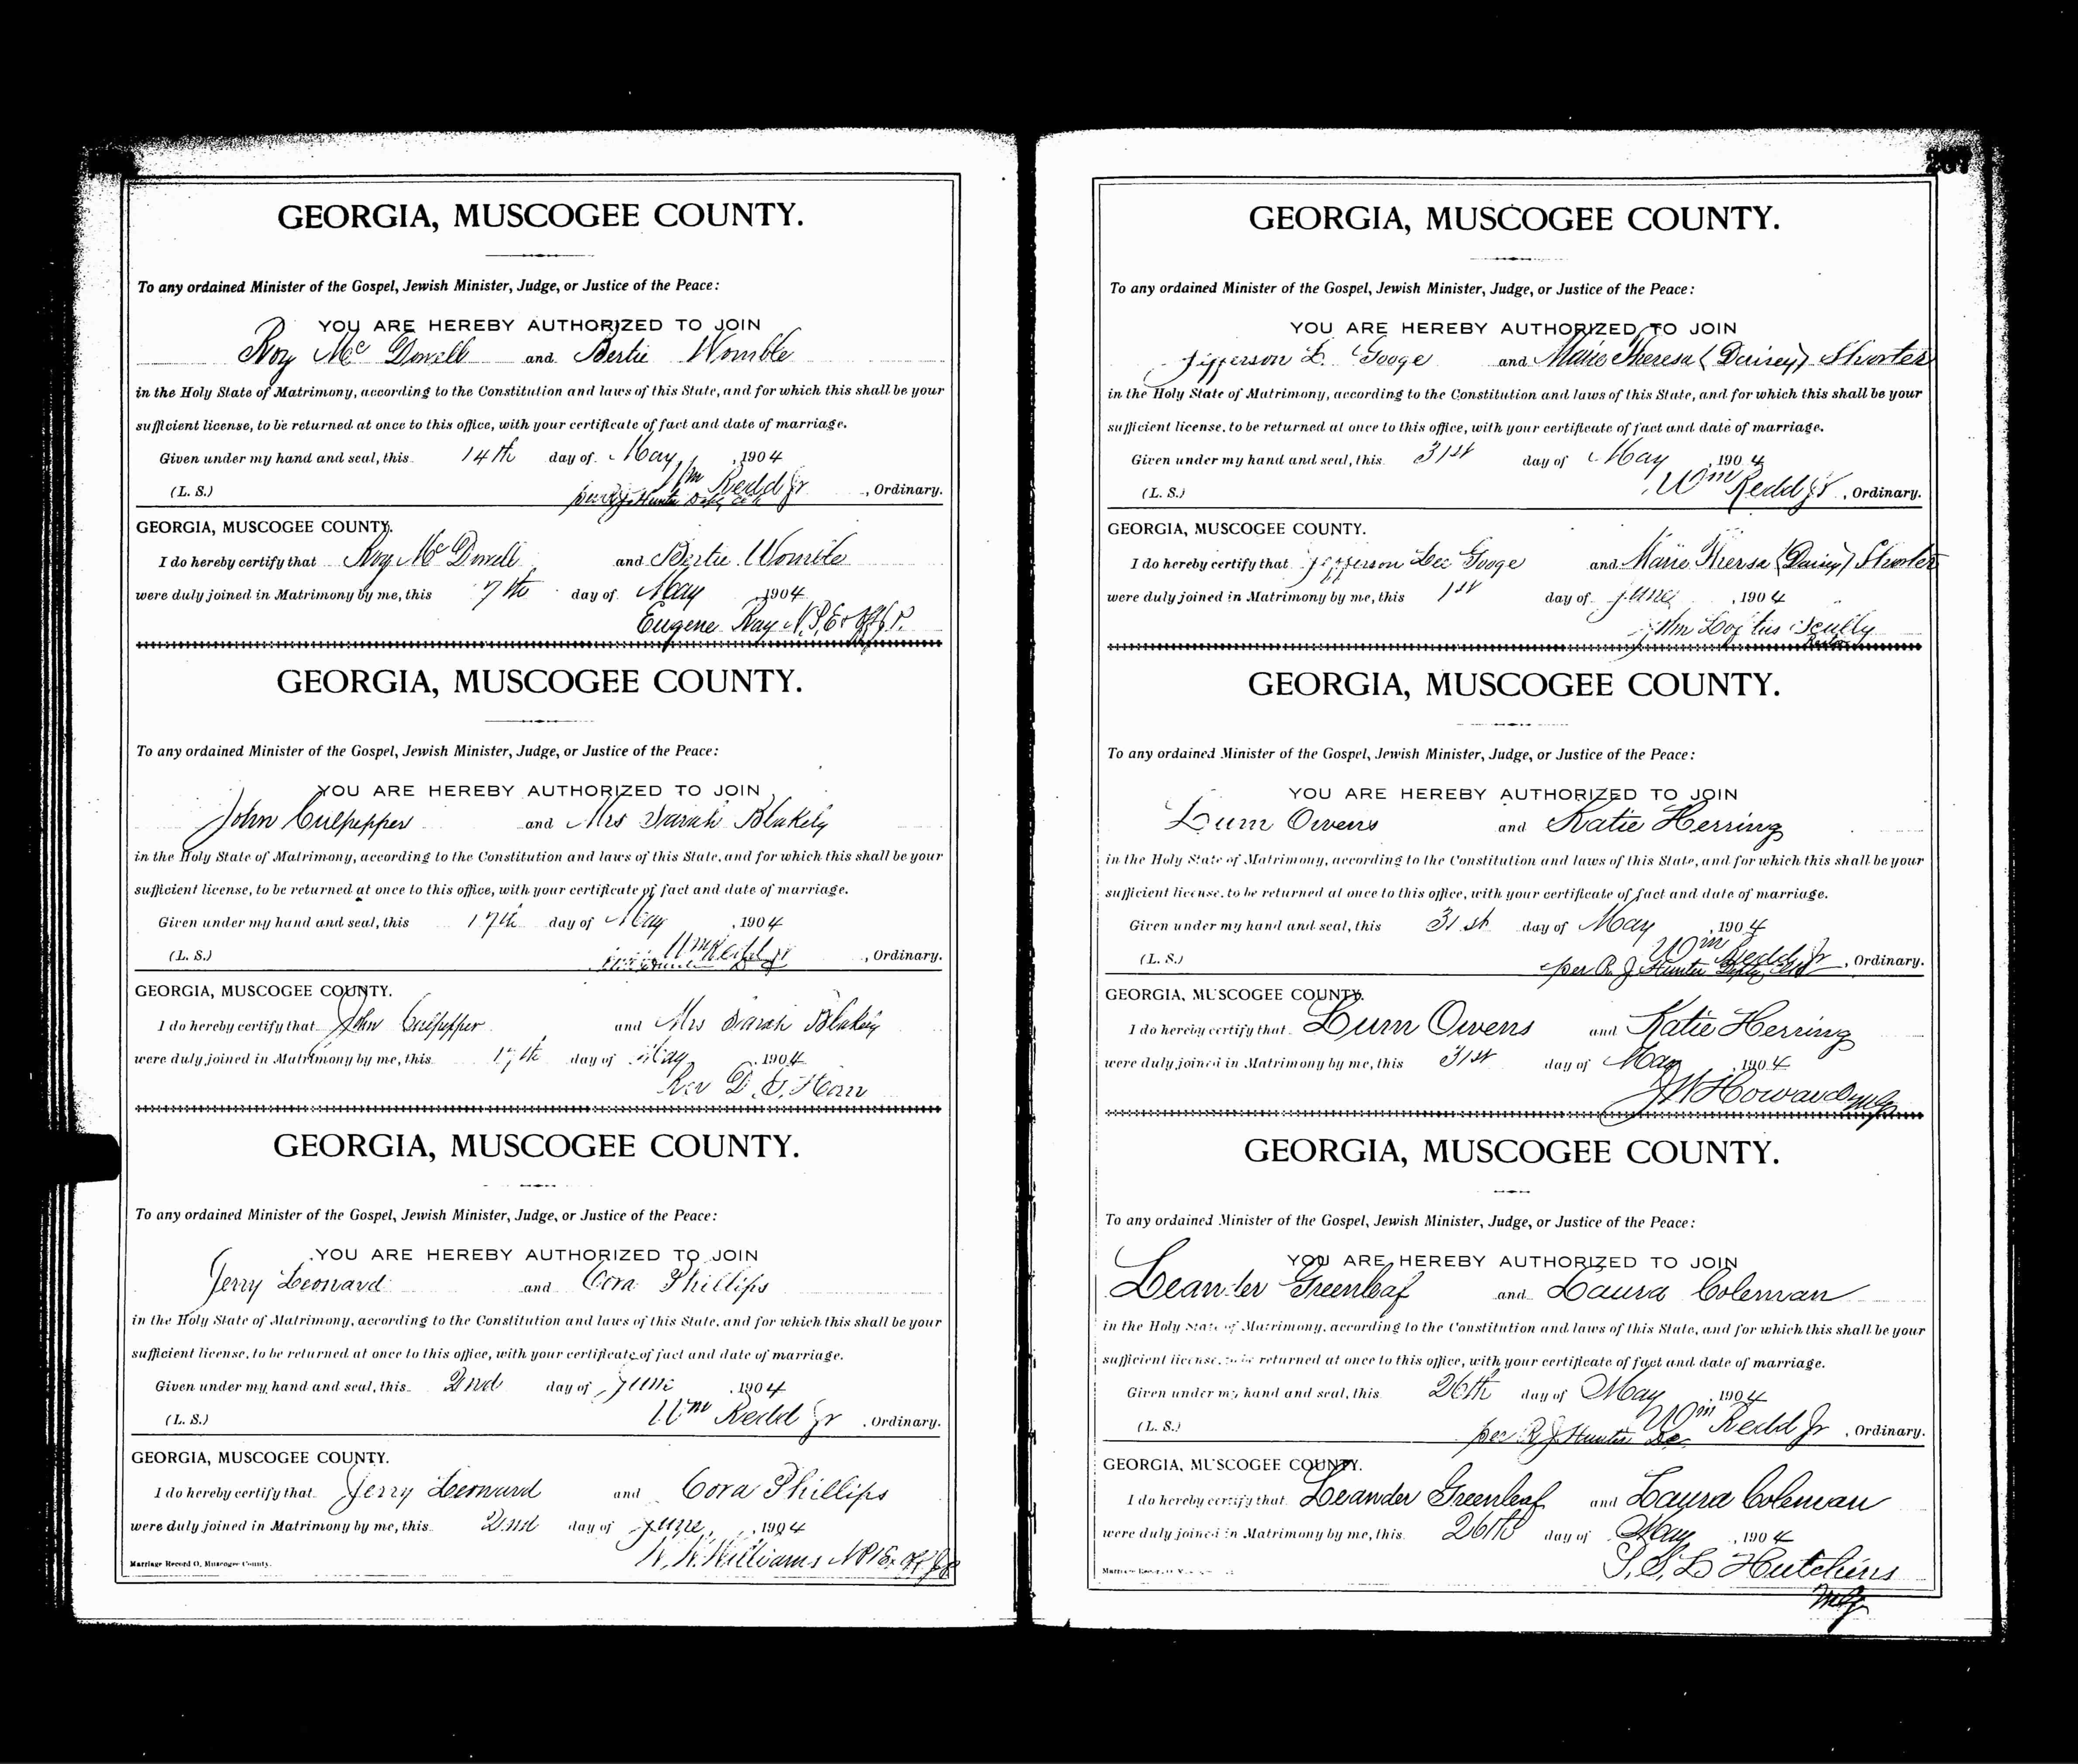 GEORGIA, MUSCOGEE COUNTY.
To any ordained Minister of the Gospel, Jewish Minister, Judge, or Justice of the Peace:
YOU ARE HEREBY AUTHORIZED TO JOIN
Roy Mc Dowell and Bertie Womble
in the Holy State of Matrimony, according to the Constitution and laws of this State, and for which this shall be your
sufficient license, to be returned at once to this office, with your certificate of fact and date of marriage.
Given under my hand and seal, this 14th day of May, 1904
(L. S.) Wm Redd Jr, Ordinary.
per R J Hunter Dpty Clk
GEORGIA, MUSCOGEE COUNTY.
I do hereby certify that Roy Mc Dowell and Bertie Womble
were duly joined in Matrimony by me, this 7th day of May 1904
Eugene Ray N.P. Ex Off J P.
GEORGIA, MUSCOGEE COUNTY.
To any ordained Minister of the Gospel, Jewish Minister, Judge, or Justice of the Peace:
YOU ARE HEREBY AUTHORIZED TO JOIN
John Culpepper and Mrs Sarah Blakely
in the Holy State of Matrimony, according to the Constitution and laws of this State, and for which this shall be your
sufficient license, to be returned at once to this office, with your certificate of fact and date of marriage.
Given under my hand and seal, this 17th day of May, 1904
(L. S.) Wm Redd Jr, Ordinary.
GEORGIA, MUSCOGEE COUNTY.
I do hereby certify that John Culpepper and Mrs Sarah Blakely
were duly joined in Matrimony by me, this 17th day of May, 1904
Rev D.
GEORGIA, MUSCOGEE COUNTY.
To any ordained Minister of the Gospel, Jewish Minister, Judge, or Justice of the Peace:
YOU ARE HEREBY AUTHORIZED TO JOIN
Jerry Leonard and Cora Phillips
in the Holy State of Matrimony, according to the Constitution and laws of this State, and for which this shall be your
sufficient license, to be returned at once to this office, with your certificate of fact and date of marriage.
Given under my hand and seal, this 2nd day of June, 1904
(L. S.) Wm Redd Jr, Ordinary.
GEORGIA, MUSCOGEE COUNTY.
I do hereby certify that Jerry Leonard and Cora Phillips
were duly joined in Matrimony by me, this 2nd day of June, 1904
Williams NP Ex Off J P
Marriage Record O, Muscogee County.
267
GEORGIA, MUSCOGEE COUNTY.
To any ordained Minister of the Gospel, Jewish Minister, Judge, or Justice of the Peace:
YOU ARE HEREBY AUTHORIZED TO JOIN
Jefferson L. Googe and Marie Theresa (Daisey) Shorter
in the Holy State of Matrimony, according to the Constitution and laws of this State, and for which this shall be your
sufficient license, to be returned at once to this office, with your certificate of fact and date of marriage.
Given under my hand and seal, this 31st day of May, 1904
(L. S.) Wm Redd Jr, Ordinary.
GEORGIA, MUSCOGEE COUNTY.
I do hereby certify that Jefferson Lee Googe and Marie Thersa (Daisey) Shorter
were duly joined in Matrimony by me, this 1st day of June, 1904
John Loftus Scully
Rector
GEORGIA, MUSCOGEE COUNTY.
To any ordained Minister of the Gospel, Jewish Minister, Judge, or Justice of the Peace:
YOU ARE HEREBY AUTHORIZED TO JOIN
Lum Owens and Katie Herring
in the Holy State of Matrimony, according to the Constitution and laws of this State, and for which this shall be your
sufficient license, to be returned at once to this office, with your certificate of fact and date of marriage.
Given under my hand and seal, this 31st day of May, 1904
(L. S.) Wm Redd Jr, Ordinary.
per R. J Hunter Dpty Clk
GEORGIA, MUSCOGEE COUNTY.
I do hereby certify that Lum Owens and Katie Herring
were duly joined in Matrimony by me, this 31st day of May, 1904
J W Howard MG
GEORGIA, MUSCOGEE COUNTY.
To any ordained Minister of the Gospel, Jewish Minister, Judge, or Justice of the Peace:
YOU ARE HEREBY AUTHORIZED TO JOIN
Leander Greenleaf and Laura Coleman
in the Holy State of Matrimony, according to the Constitution and laws of this State, and for which this shall be your
sufficient license, to be returned at once to this office, with your certificate of fact and date of marriage.
Given under my hand and seal, this 26th day of May, 1904
(L. S.) Wm Redd Jr, Ordinary.
per R J Hunter DC
GEORGIA, MUSCOGEE COUNTY.
I do hereby certify that Leander Greenleaf and Laura Coleman
were duly joined in Matrimony by me, this 26th day of May, 1904
S. S. L Hutchins
MG